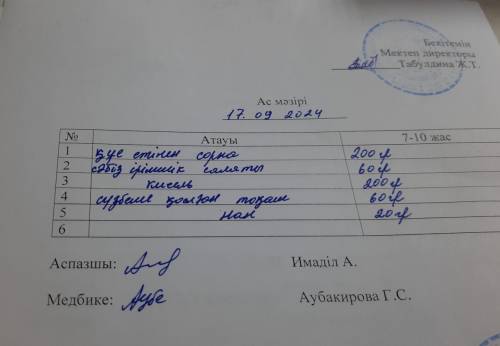 Бекітемін
Мектеп директоры
Табулдина Ж.Т.
Ас мәзірі
17.09 2024
№ Атауы 7-10 жас
1 құс етінен сорпа 200 гр
2 сәбіз ірімшік салаты 60 гр
3 кисель 200 гр
4 сүзбеше қосылған тоқаш 60 гр
5 нан 20 гр
6
Аспазшы: Имаділ А.
Медбике: Аубакирова Г.С.